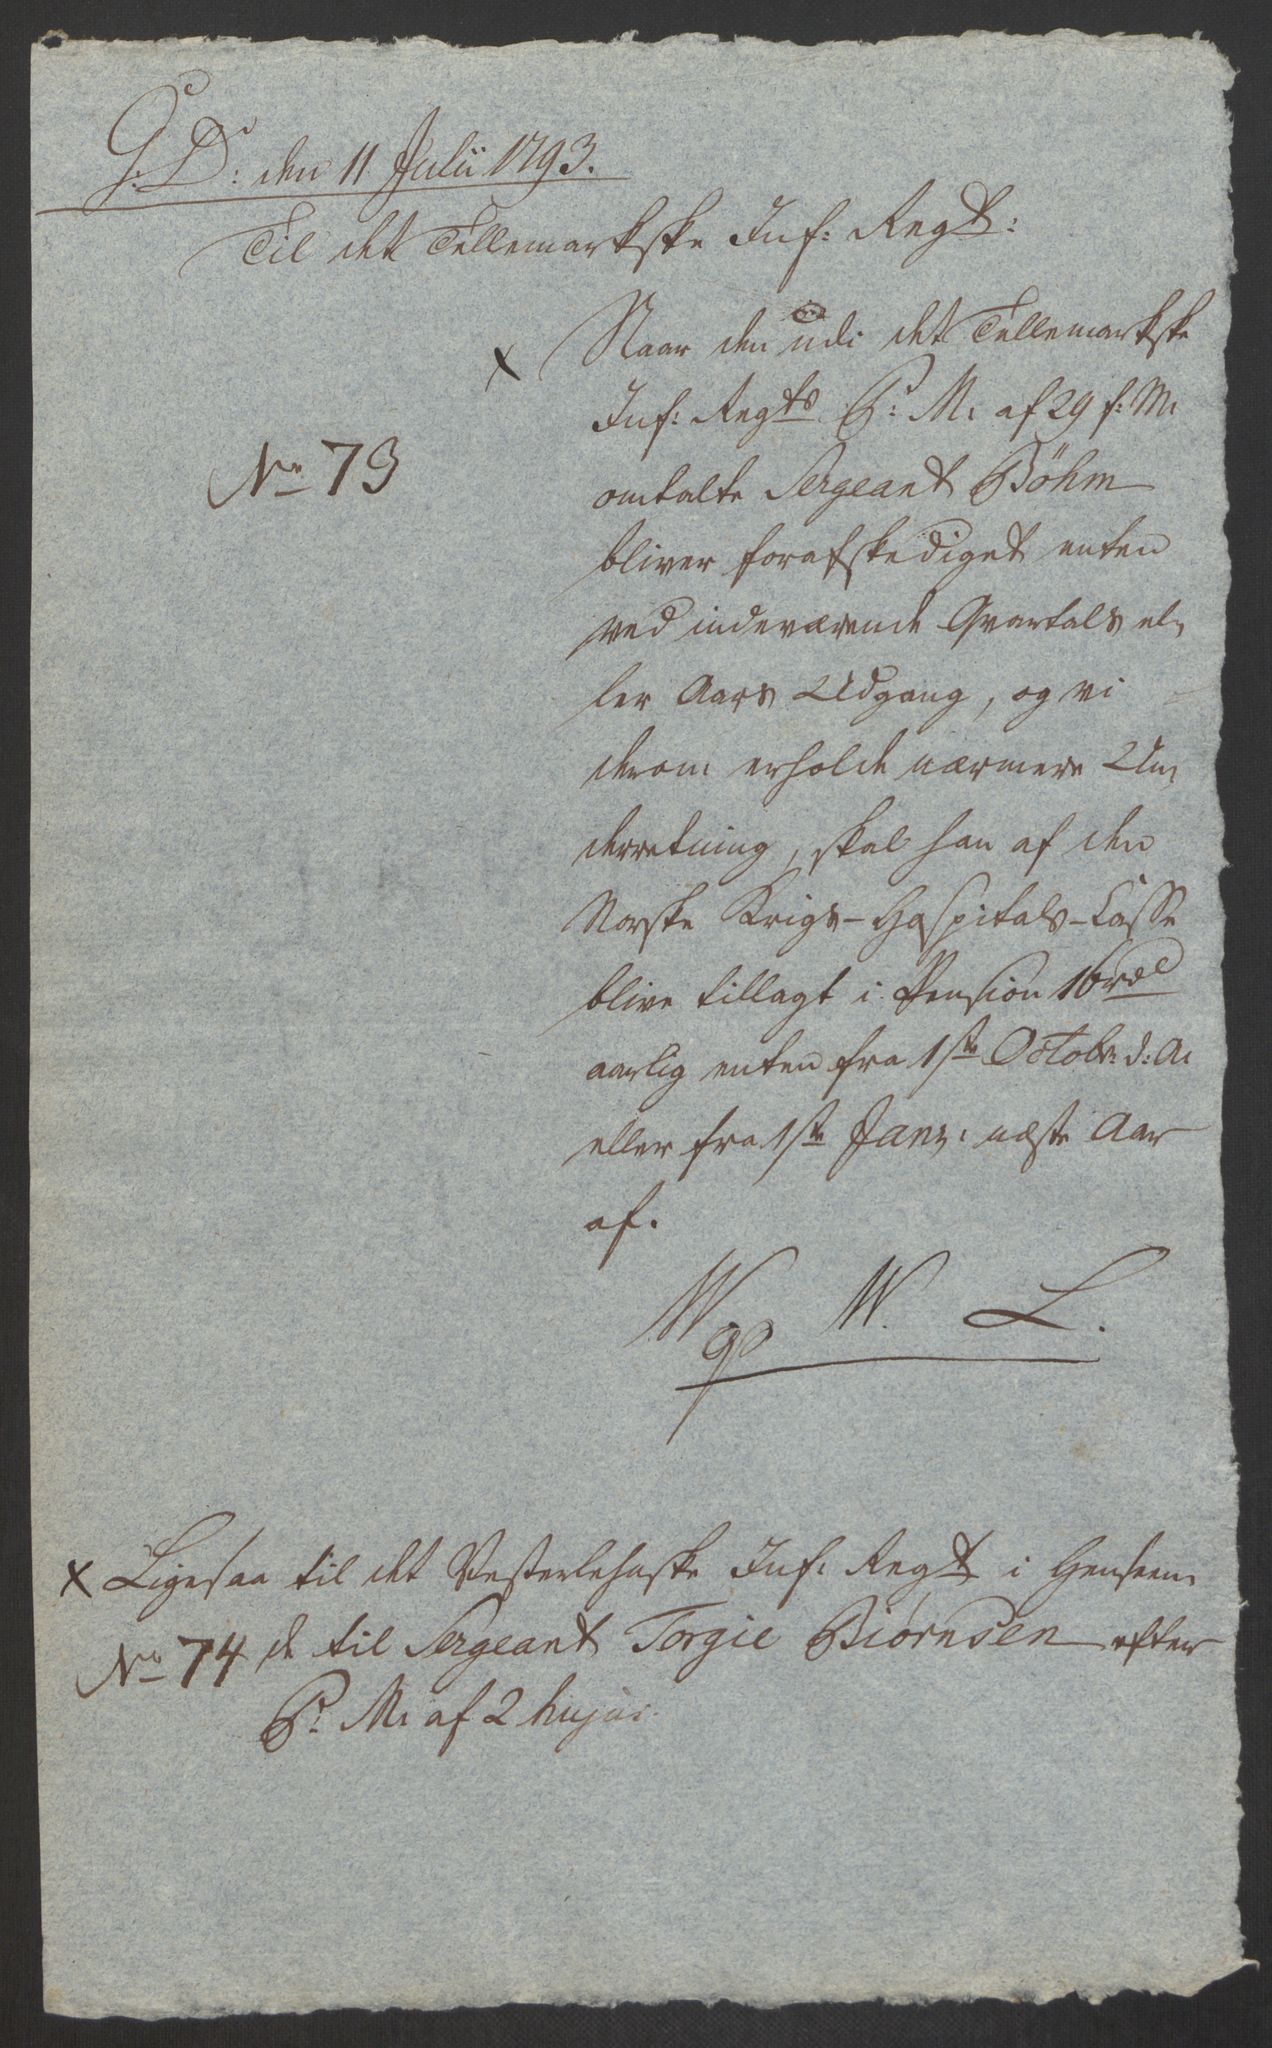 G: D: den 11 Julii 1793.
Til det Tellemarkske Inf: Regt:
x Naar den udi det Tellemarkske
Inf: Regts P: M: af 29 f: M:
No 73
omtalte Sergeant Böhm
bliver forafskediget enten
ved indeværende Qvartals el-
ler Aars Udgang, og vi
derom erholde nærmere Un-
derretning, skal han af den
Norske Krigs-Hospitals-Casse
blive tillagt i Pension 16 rdl
aarlig enten fra 1ste Octobr: d: A:
eller fra 1ste Janr: næste Aar
af.
W W. L.
x Ligesaa til det Vesterlehnske Inf: Regt i Henseen-
No 74 de til Sergeant Torgie Biørnsen efter
P: M: af 2 hujus.